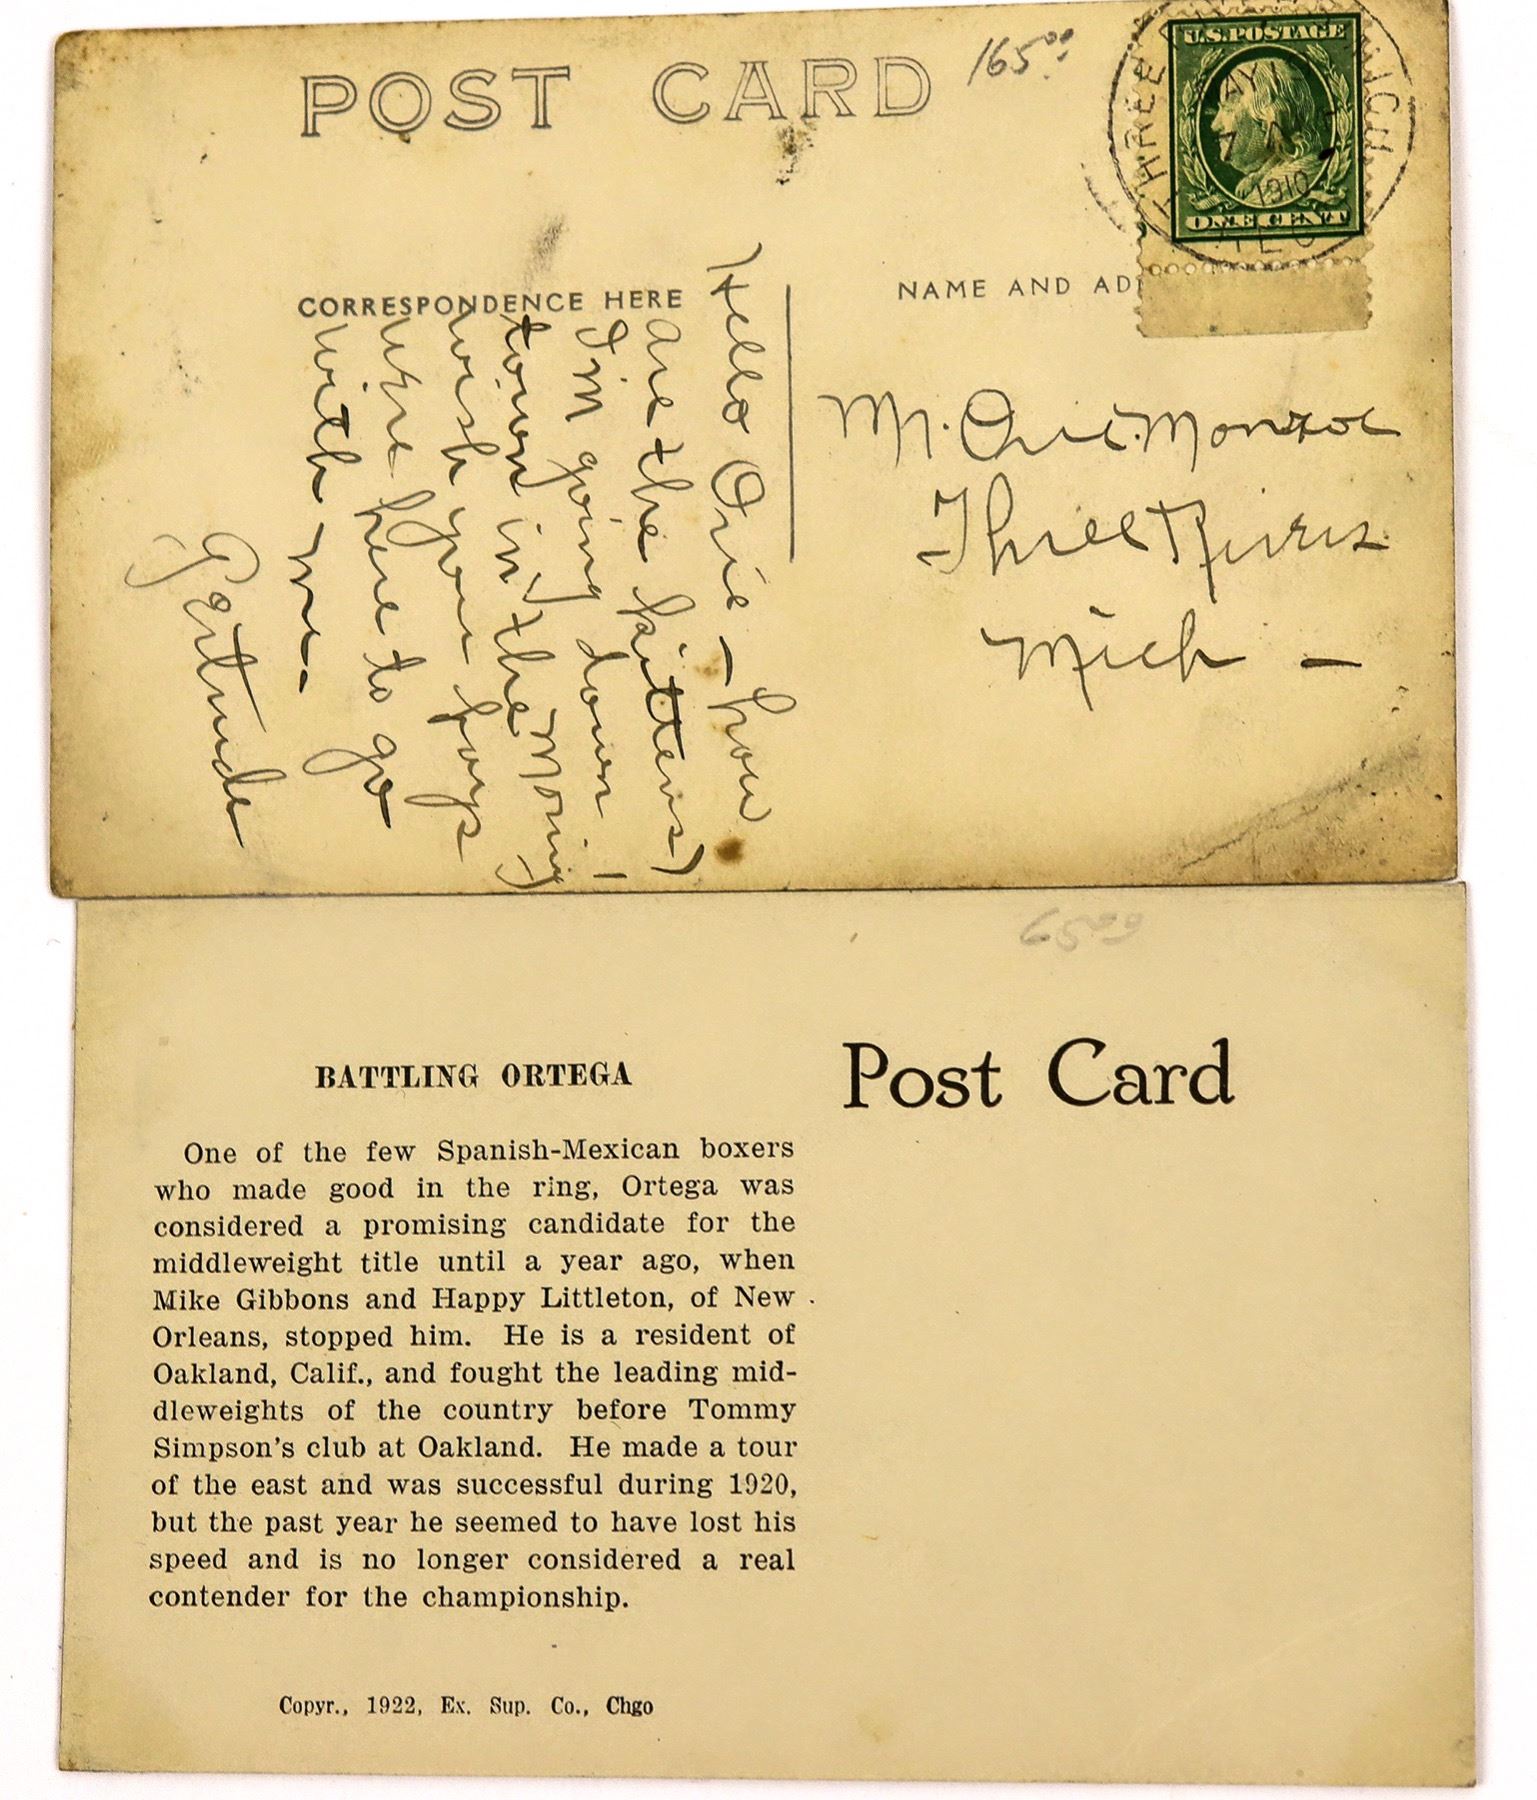 POST CARD
165⁰⁰
U.S. POSTAGE
ONE CENT
THREE
MICH
7 A
1910
REC
CORRESPONDENCE HERE
NAME AND AD
Mr. Orie. Monroe
Three Rivers
Mich –
Hello Orie – how
are the kittens)
I'm going down –
town in the moring
wish you boys
were here to go
with me.
Gertrude
65⁰⁰
BATTLING ORTEGA
Post Card
One of the few Spanish-Mexican boxers
who made good in the ring, Ortega was
considered a promising candidate for the
middleweight title until a year ago, when
Mike Gibbons and Happy Littleton, of New
Orleans, stopped him. He is a resident of
Oakland, Calif., and fought the leading mid-
dleweights of the country before Tommy
Simpson's club at Oakland. He made a tour
of the east and was successful during 1920,
but the past year he seemed to have lost his
speed and is no longer considered a real
contender for the championship.
Copyr., 1922, Ex. Sup. Co., Chgo